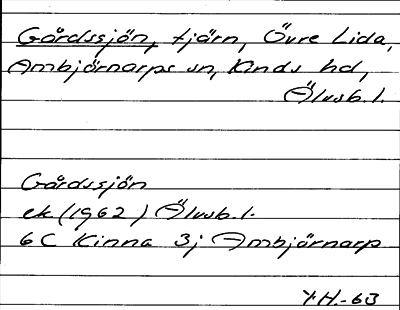 Gårdssjön, tjärn, Övre Lida,
Ambjörnarps sn, Kinds hd,
Älvsb. l.
Gårdssjön
ek (1962) Älvsb. l.
6 C Kinna 3j Ambjörnarp
Y.H.-63